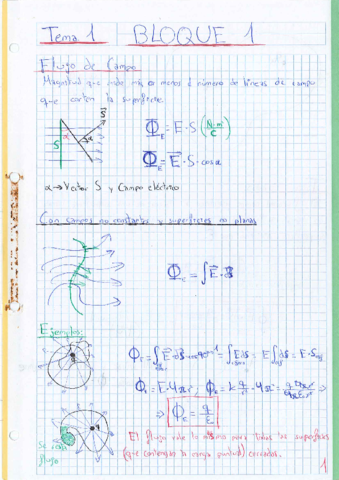 Tema 1 BLOQUE 1
Flujo de Campo
Magnitud que mide más o menos el número de líneas de campo
que corten la superficie.
S α S
Φ_E = E·S (N·m²/C)
Φ_E = E·S·cosα
α→Vector S y Campo eléctrico
Con campos no constantes y superficies no planas
Φ_E = ∫E·dS
Ejemplos:
= ∫EdS = E∫dS = E·S
Φ_E = E·4πr²; Φ_E = k q/r² · 4πr² =
⇒ Φ_E = q/ε₀
Se resta
flujo
El flujo vale lo mismo para todas las superficies
(que contengan la carga puntual) cerradas.
1